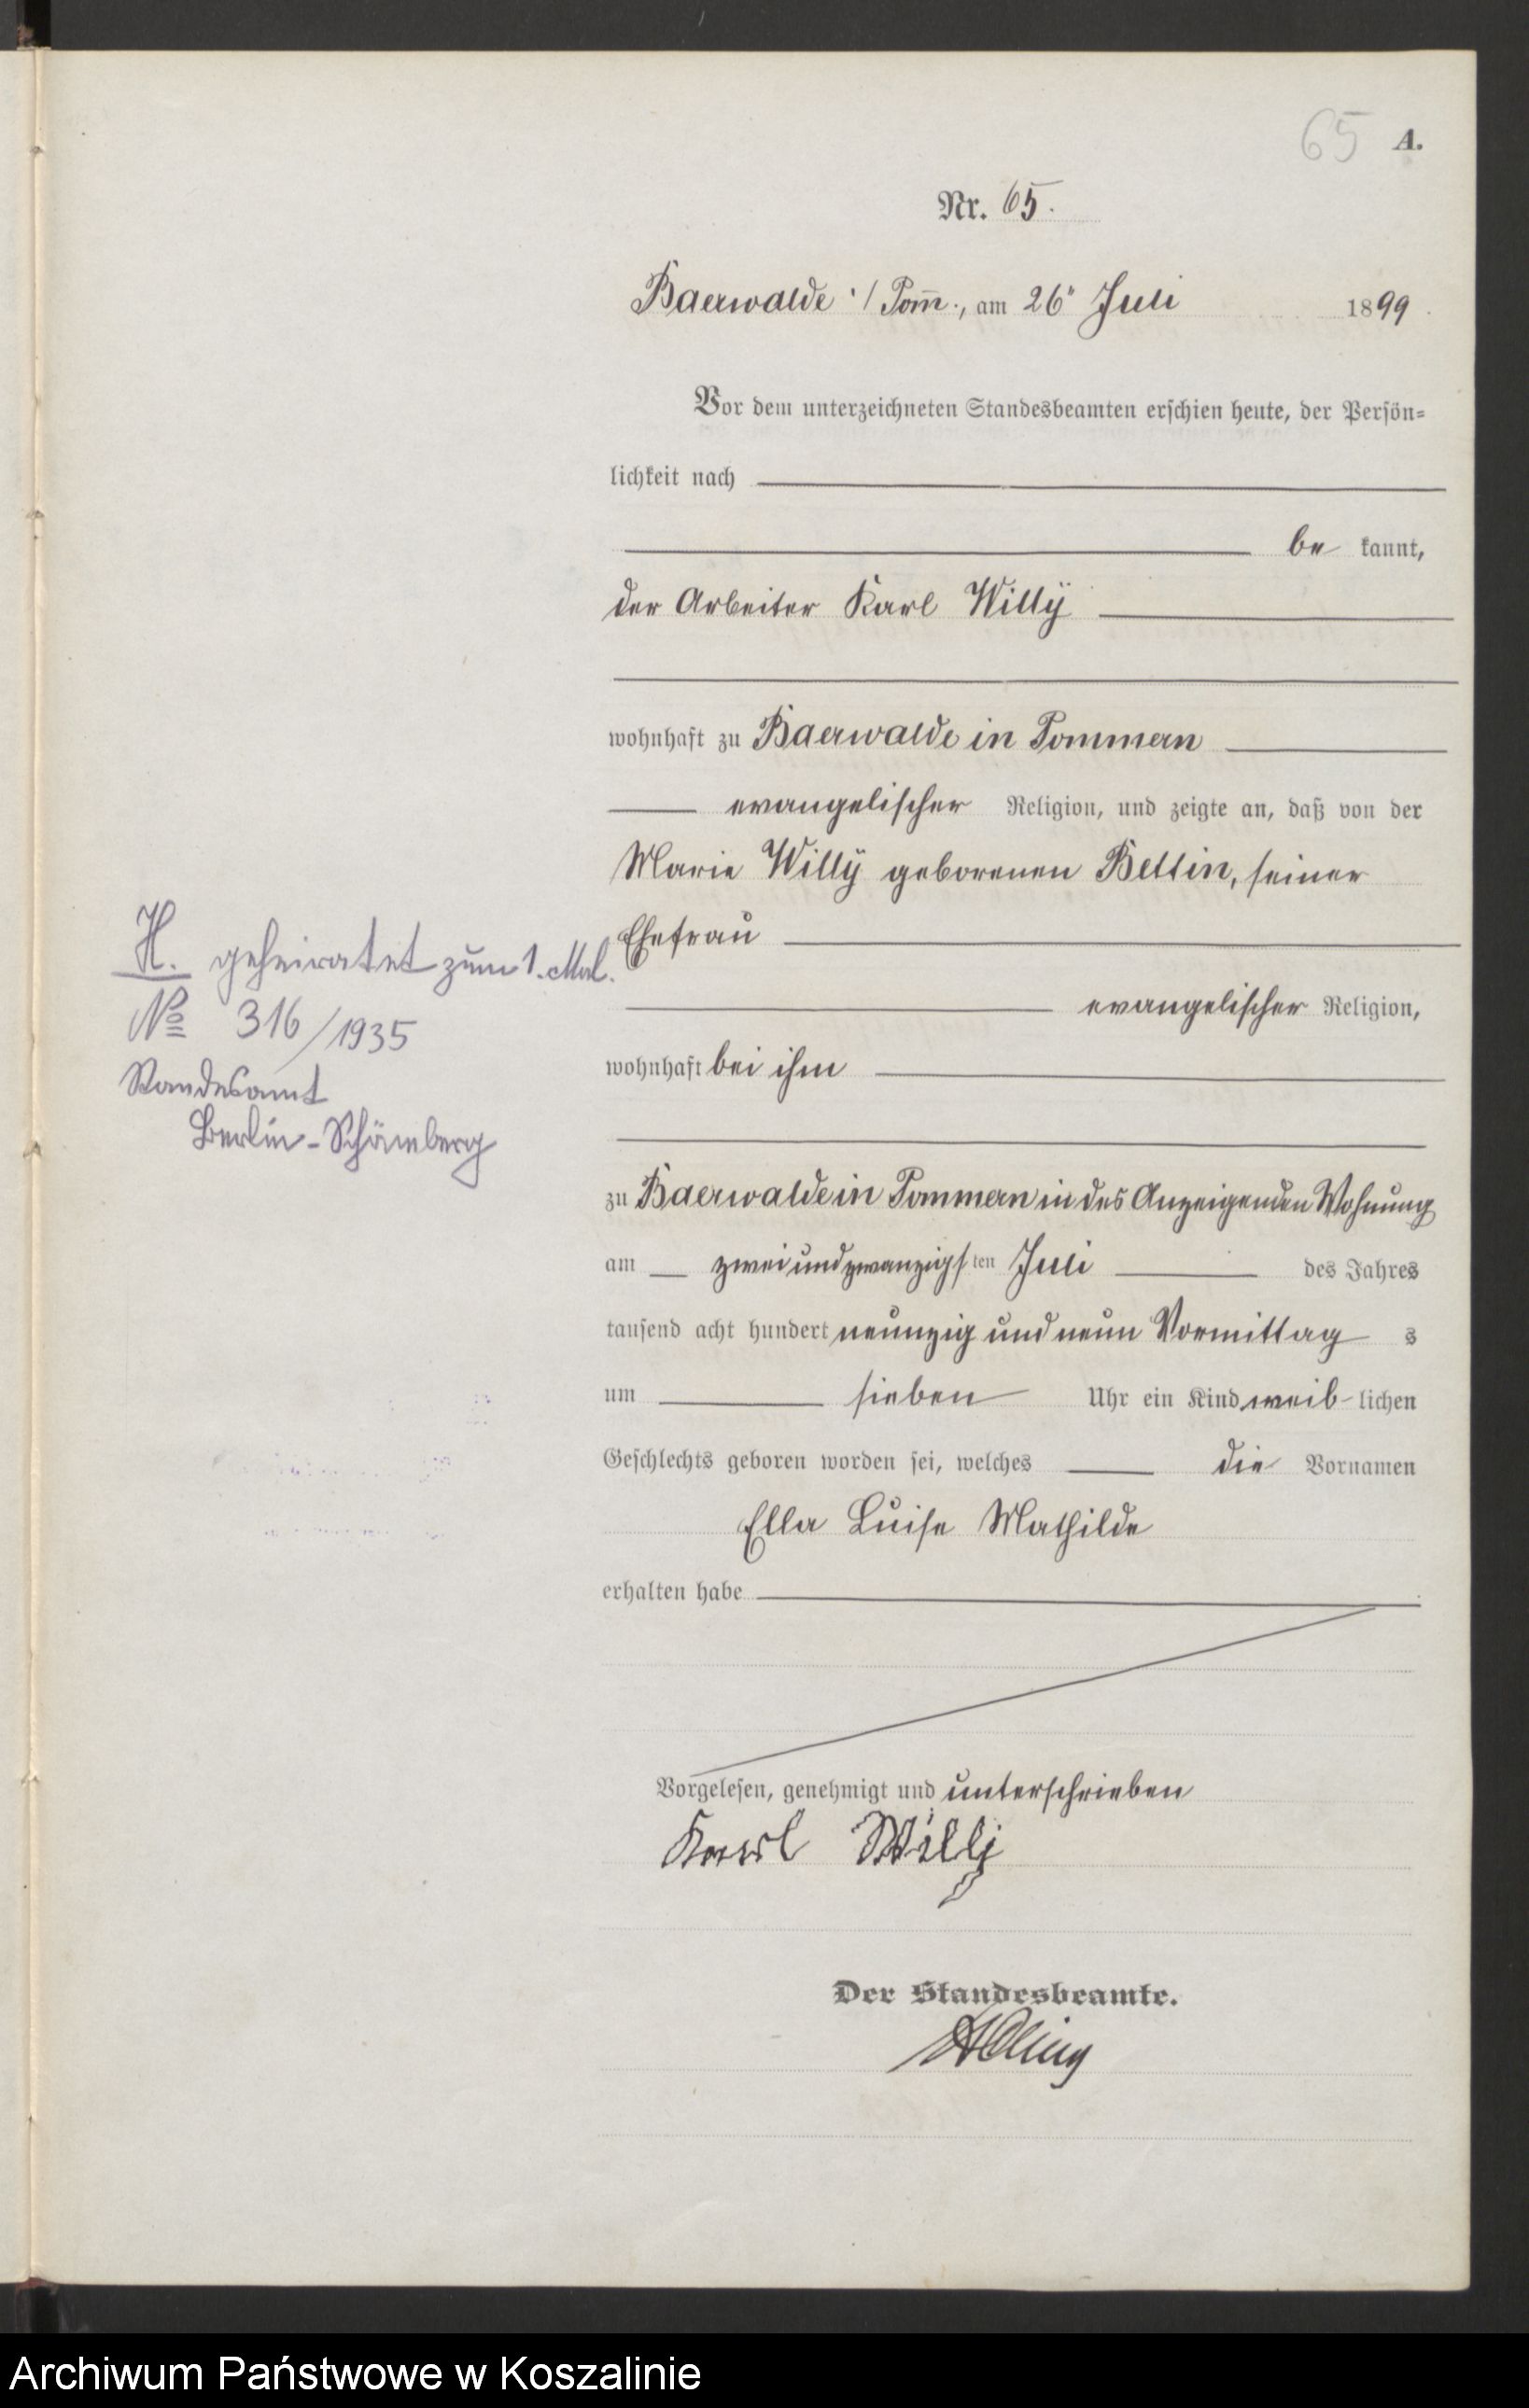 65 A.
Nr. 65.
Baerwalde i/Pom̄., am 26ᵗ Juli 1899.
Vor dem unterzeichneten Standesbeamten erschien heute, der Persön-
lichkeit nach
be kannt,
der Arbeiter Karl Willÿ
wohnhaft zu Baerwalde in Pommern
evangelischer Religion, und zeigte an, daß von der
Marie Willÿ geborenen Bettin, seiner
Ehefrau
evangelischer Religion,
wohnhaft bei ihm
zu Baerwalde in Pommern in des Anzeigenden Wohnung
am zwei und zwanzigs ten Juli des Jahres
tausend acht hundert neunzig und neun Vormittag s
um sieben Uhr ein Kind weib-lichen
Geschlechts geboren worden sei, welches die Vornamen
Ella Luise Mathilde
erhalten habe
Vorgelesen, genehmigt und unterschrieben
Karl Willj
Der Standesbeamte.
H. geheiratet zum 1. Mal.
No 316/1935
Standesamt
Berlin-Schöneberg
Archiwum Państwowe w Koszalinie